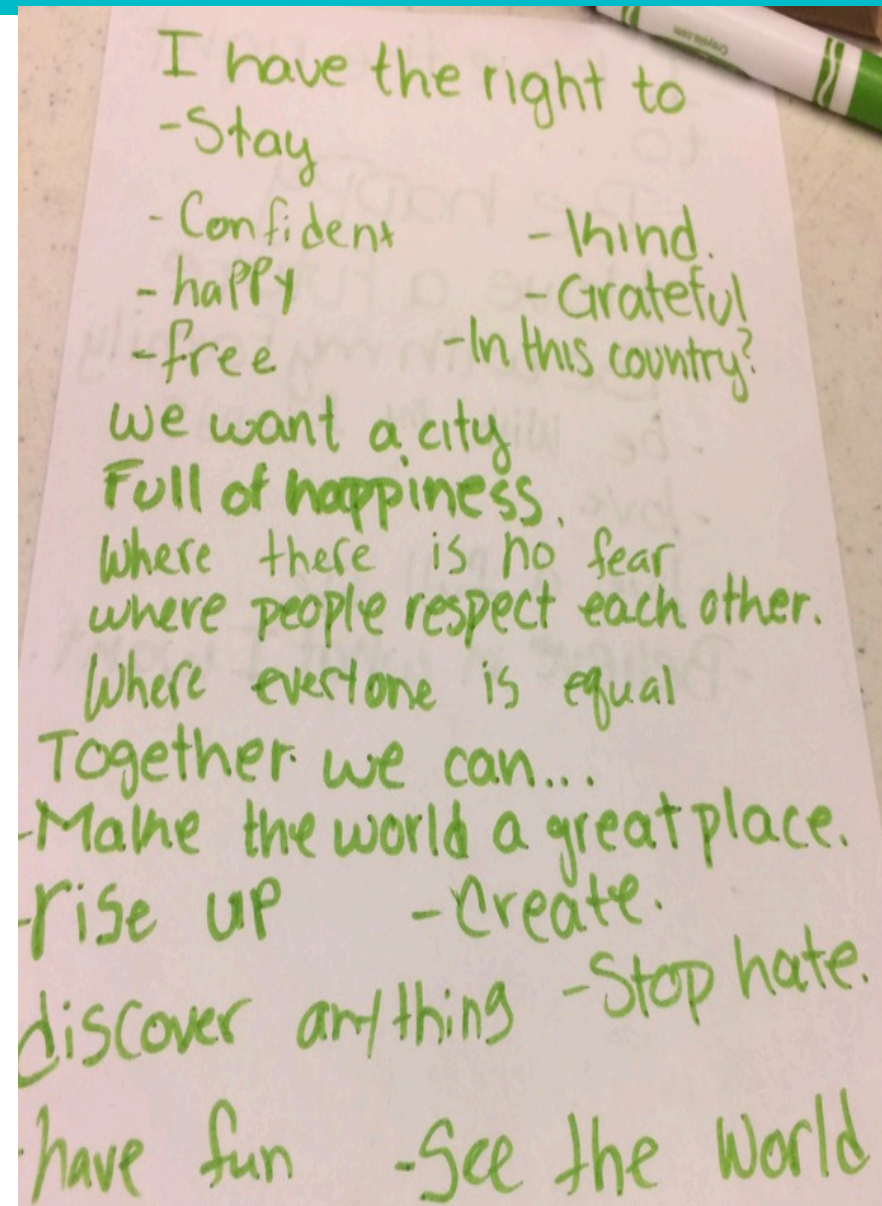 I have the right to
-Stay
- Confident - Kind.
- happy - Grateful
- free - In this country?
we want a city
Full of happiness.
Where there is no fear
where people respect each other.
Where everyone is equal
Together we can...
-Make the world a great place.
-rise up - Create.
discover anything - Stop hate.
-have fun - See the World
Crayola.com